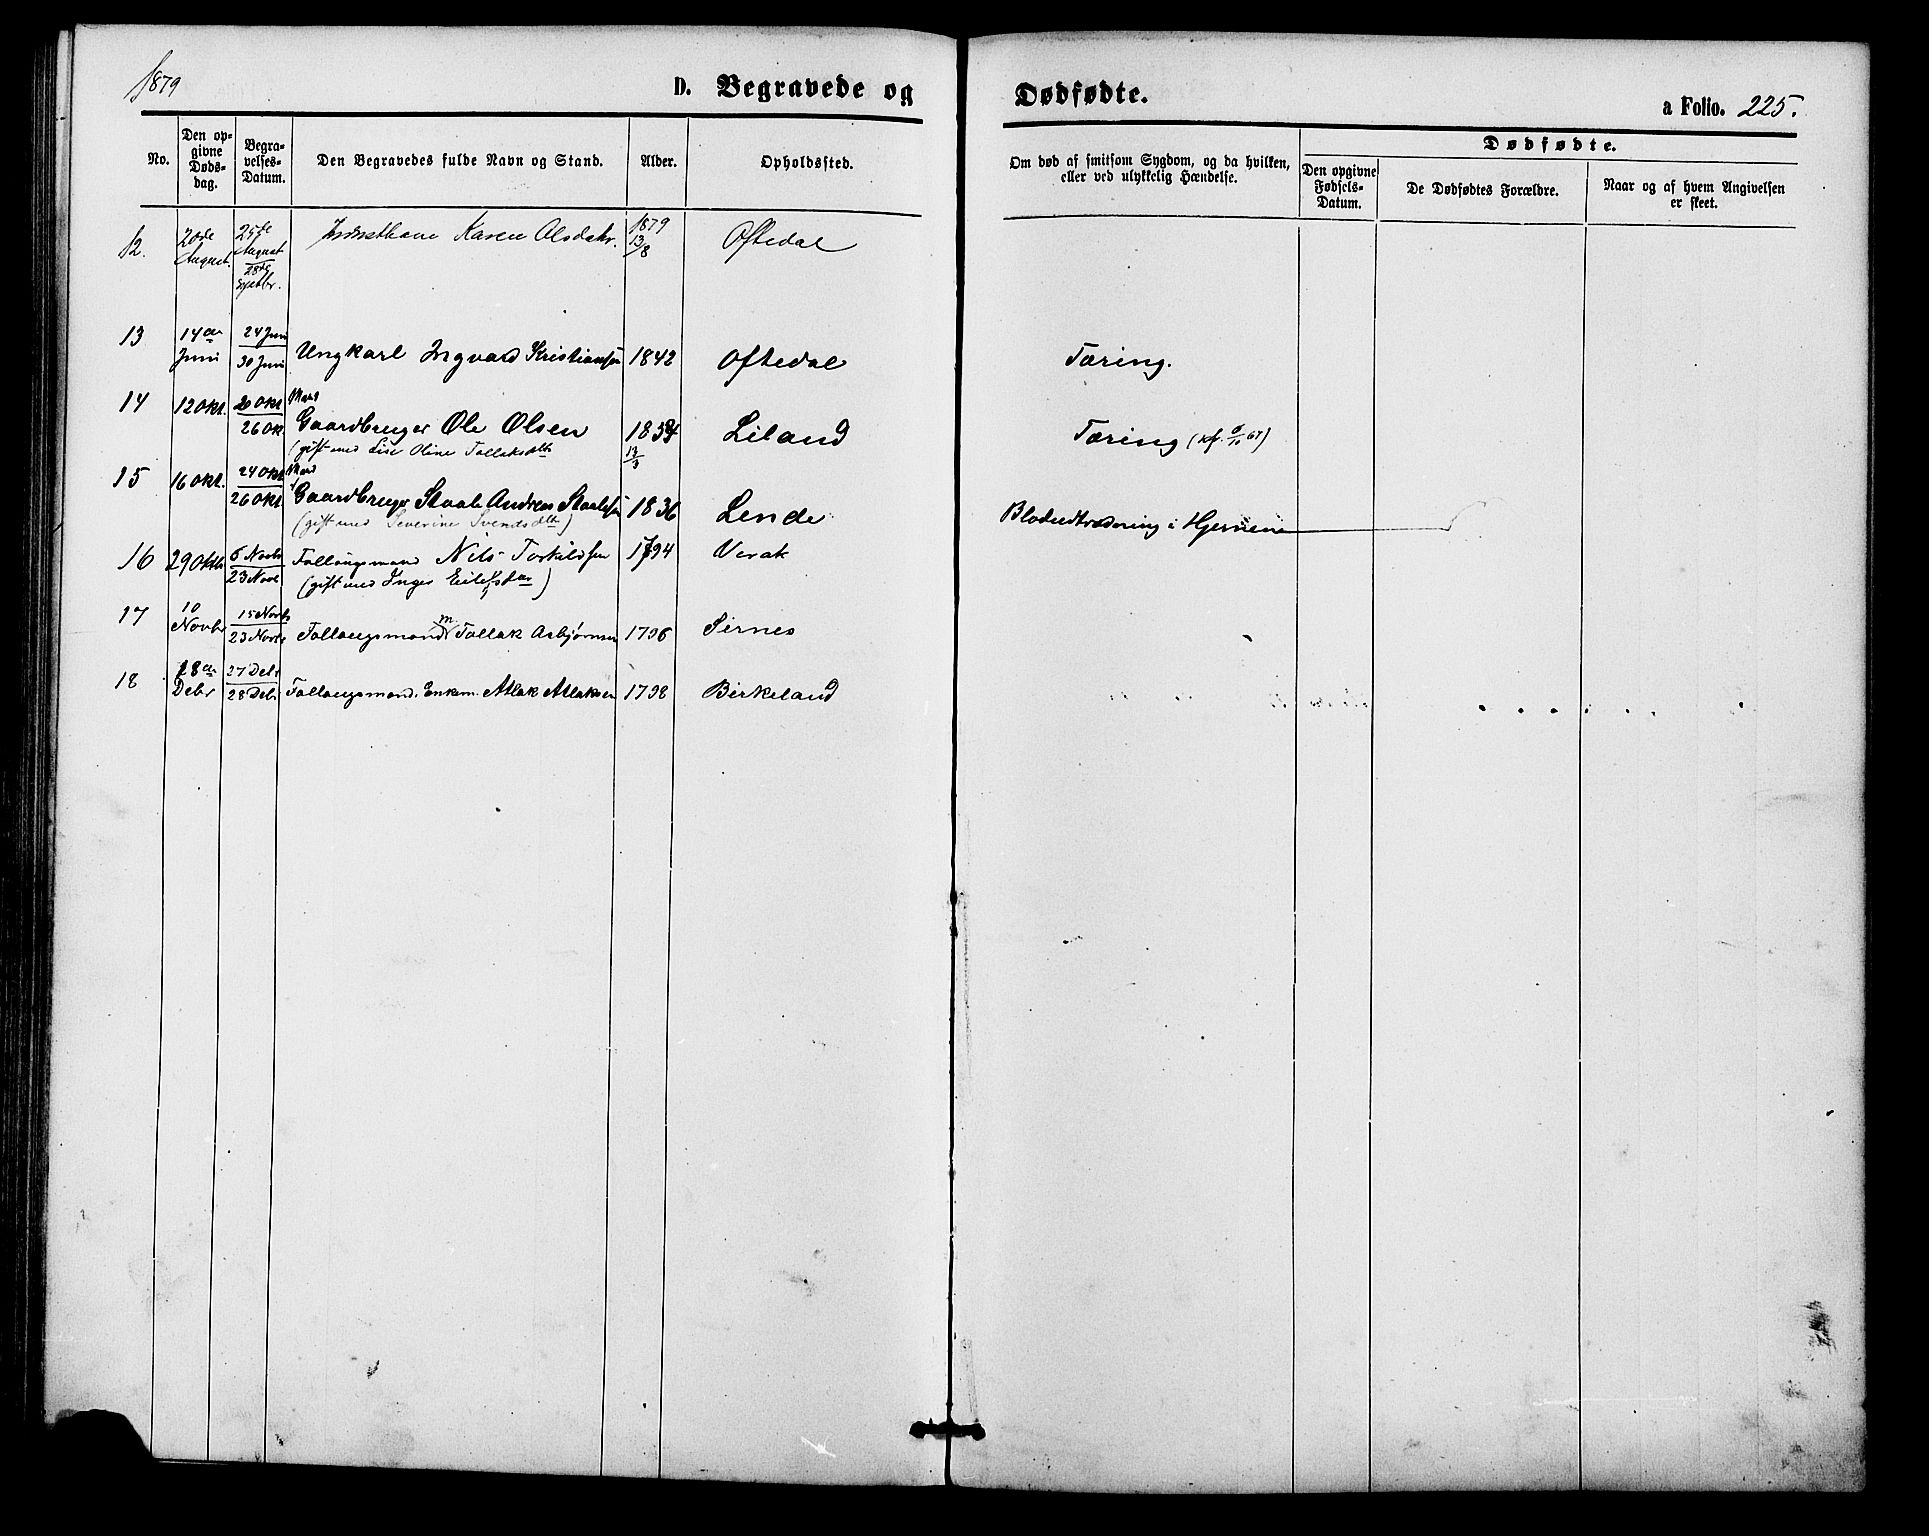 1879
D. Begravede og Dødfødte.
a Folio. 225.
No.
Den opgivne Døds-dag.
Begravelses-Datum.
Den Begravedes fulde Navn og Stand.
Alder.
Opholdssted.
Om død af smitsom Sygdom, og da hvilken, eller ved ulykkelig Hændelse.
Dødfødte.
Den opgivne Fødsels-Datum.
De Dødfødtes Forældre.
Naar og af hvem Angivelsen er skeet.
12. 20de August. 25de August 28de Septbr. Karen Olsdatr. 1879 13/8 Oftedal
13 14de Juni 24 Juni 30 Juni Ungkarl Ingvard Kristiansen 1842 Oftedal Tæring.
14 12 Okt. 20 Okt. 26 Ok. Gaardbruger Ole Olsen 1854 13/3 Liland Tæring
(gift med Lise Oline Tollaksdtr
15 16 Okt. 24 Okt. 26 Okt. Gaardbruger Staale Andreas Staalesen 1836 Lende Blodudtrædning i Hjernen
(gift med Severine Svendsdtr)
16 29 Oktb 6 Novbr 23 Novb Follaugsmand Nils Torkildsen 1794 Verak
(gift med Inger Eilefsdtr)
17 10 Novbr 15 Novbr 23 Novbr Follaugsmand Tollak Asbjørnsen 1796 Sirnes
18 18de Debr 27 Debr 28 Debr Follaugsmand. Enkm. Atlak Atlaksen 1798 Birkeland